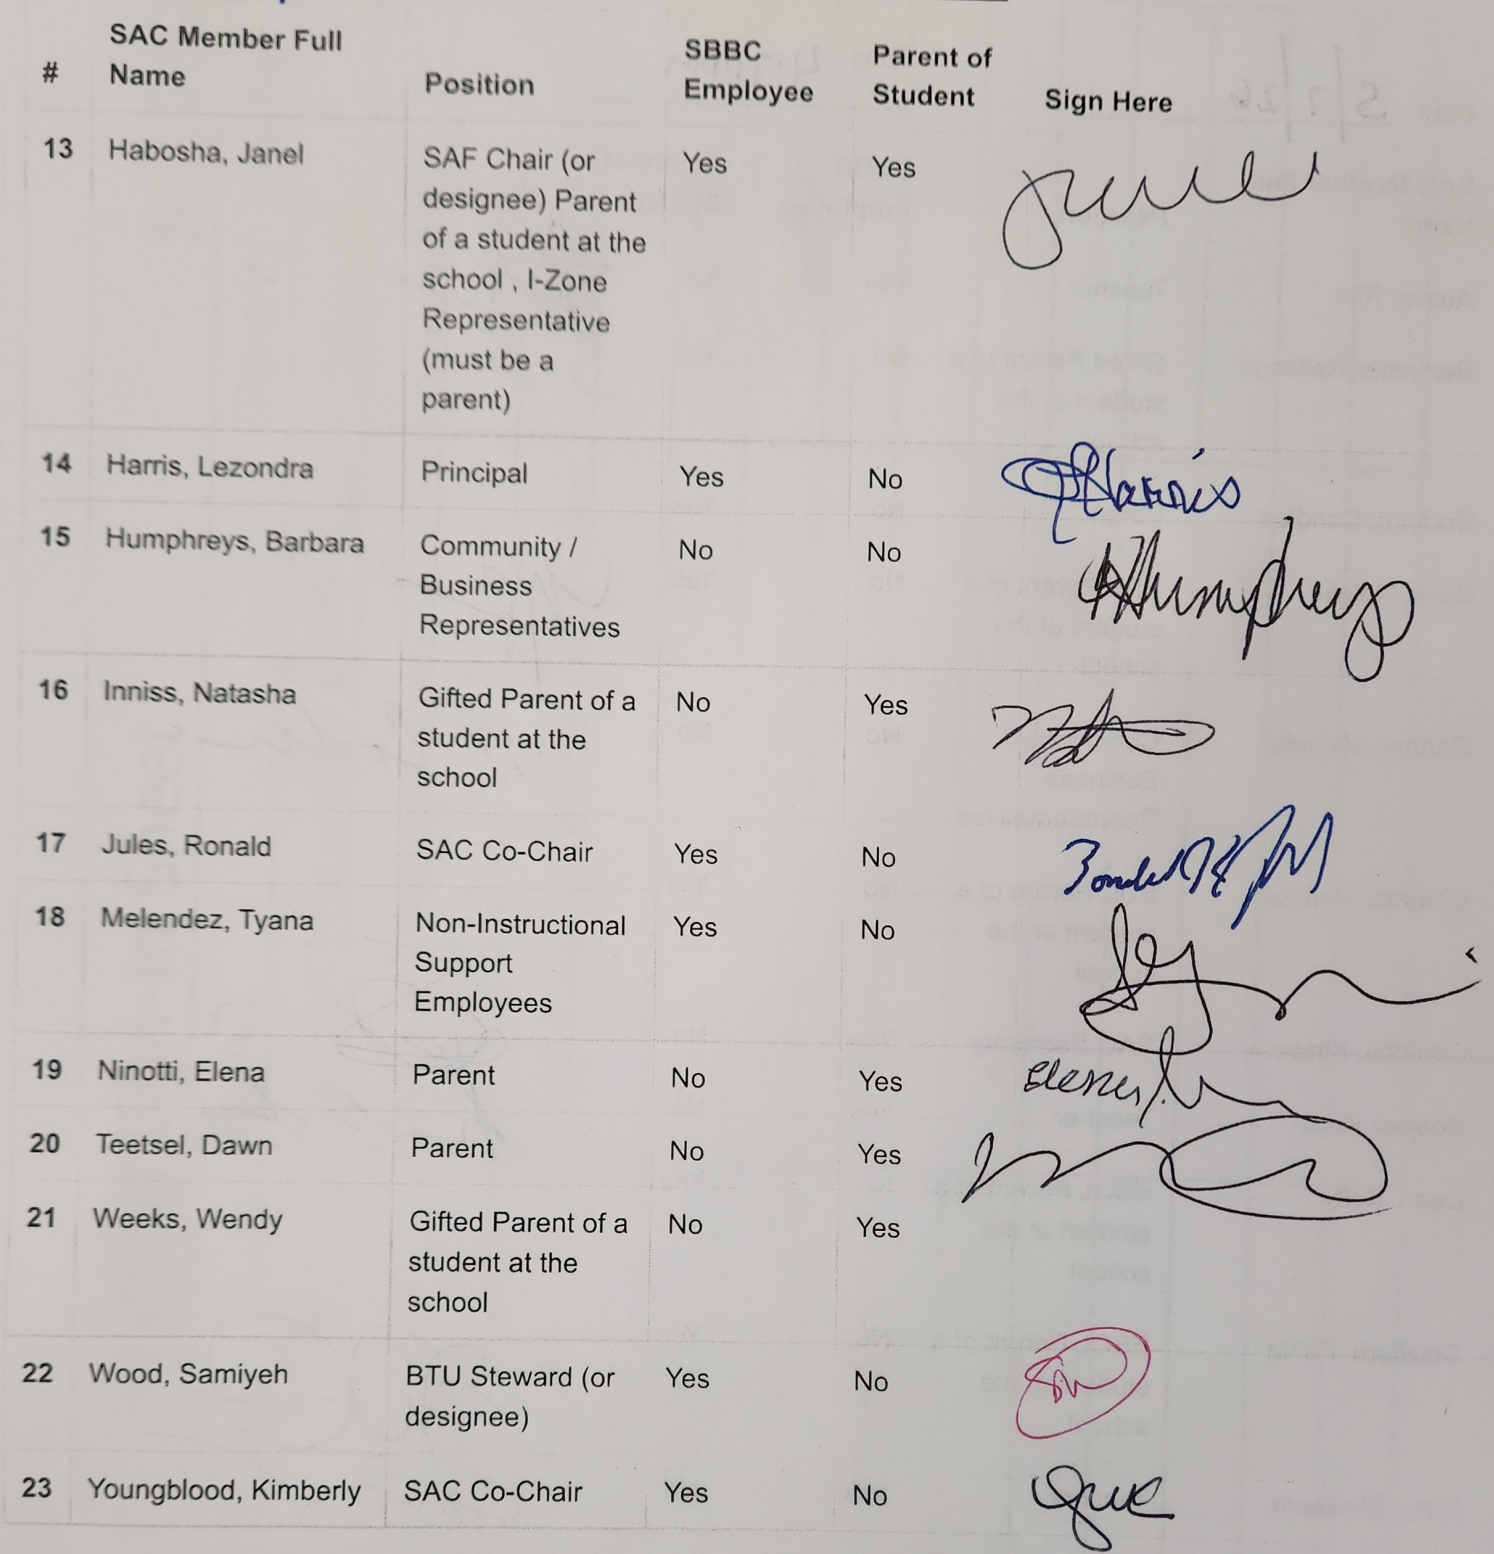 SAC Member Full SBBC Parent of
# Name Position Employee Student Sign Here
13 Habosha, Janel SAF Chair (or Yes Yes
designee) Parent
of a student at the
school , I-Zone
Representative
(must be a
parent)
14 Harris, Lezondra Principal Yes No Harris
15 Humphreys, Barbara Community / No No Humphreys
Business
Representatives
16 Inniss, Natasha Gifted Parent of a No Yes
student at the
school
17 Jules, Ronald SAC Co-Chair Yes No
18 Melendez, Tyana Non-Instructional Yes No
Support
Employees
19 Ninotti, Elena Parent No Yes Elena
20 Teetsel, Dawn Parent No Yes
21 Weeks, Wendy Gifted Parent of a No Yes
student at the
school
22 Wood, Samiyeh BTU Steward (or Yes No SW
designee)
23 Youngblood, Kimberly SAC Co-Chair Yes No